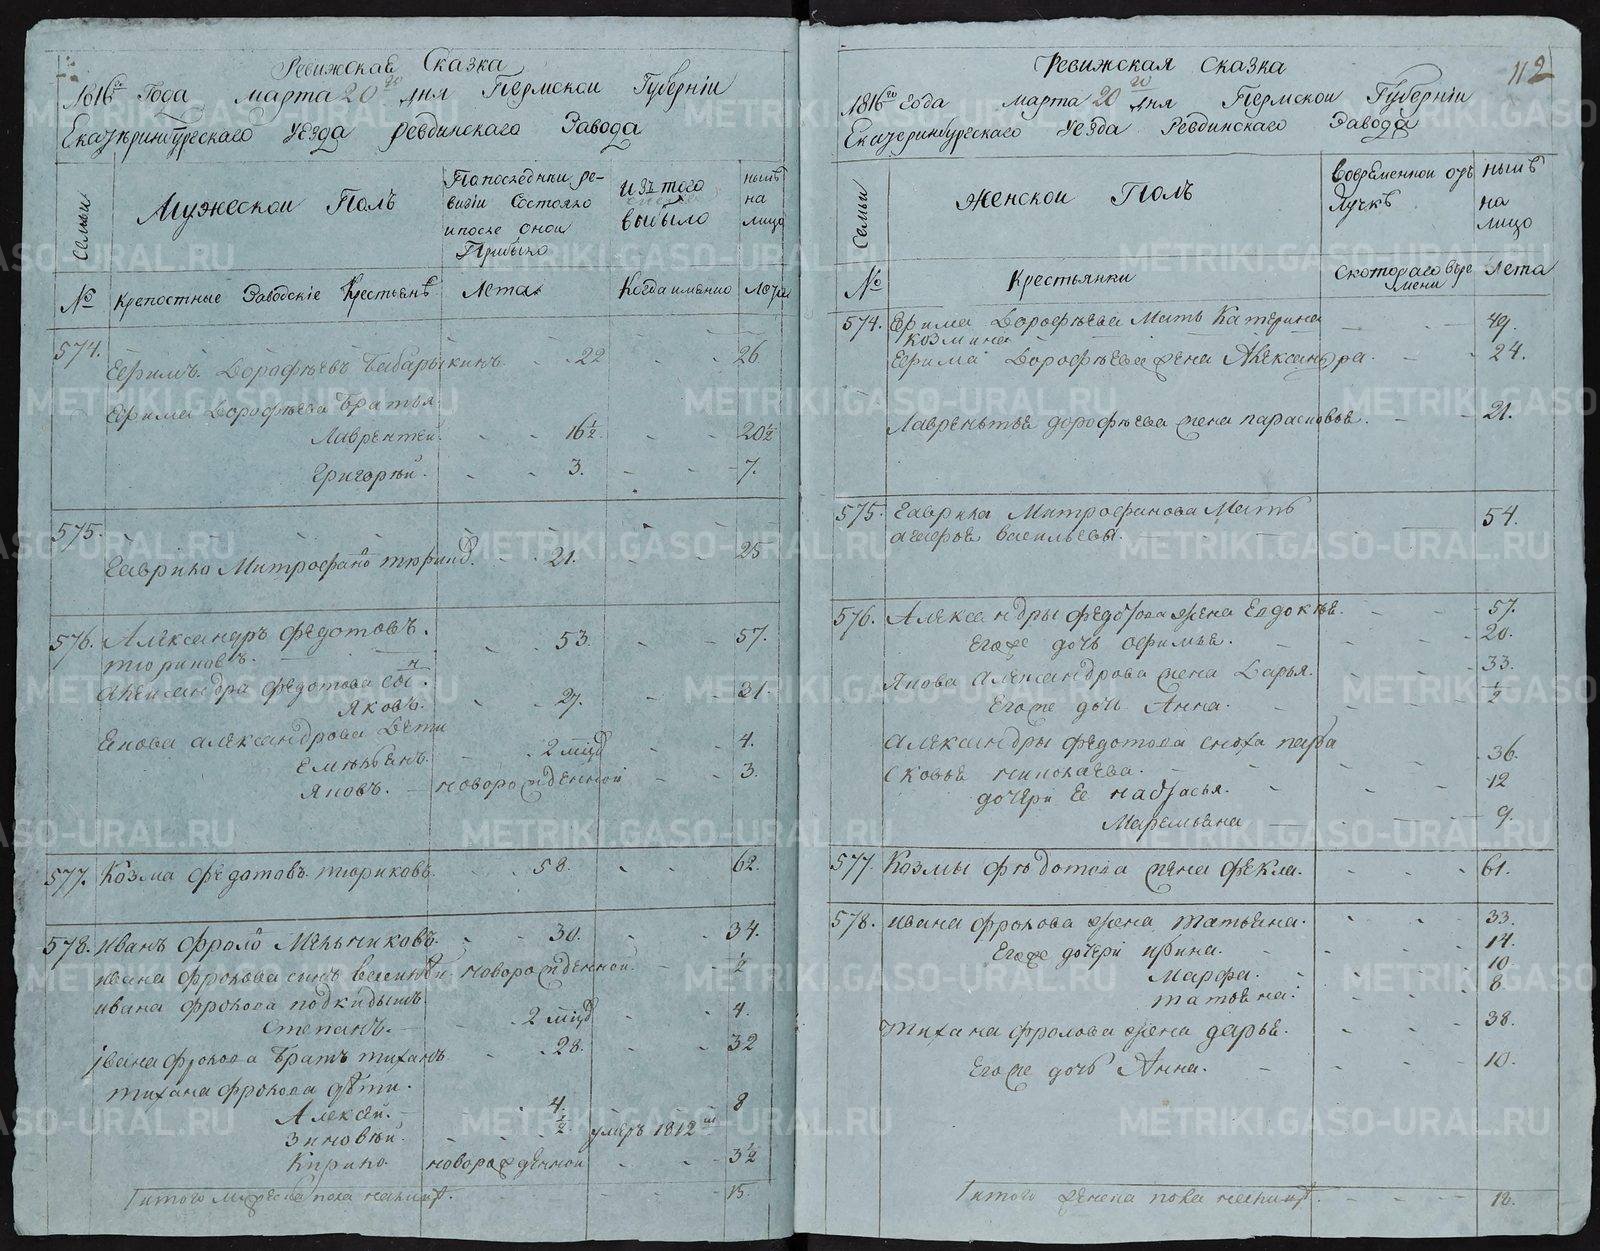 Ревижская Сказка
1816го Года марта 20 20 дня Пермскои Губерніи
Екатеринбургскаго уезда ревдинскаго Завода
Семьи
Мужескои Полъ
По последнии ре-
визіи Состояло
и после онои
Прибыло
Изъ того
выбыло
нынѣ
на
лицо
№
Крепостные Заводскіе Крестьянѣ
Лета
Когда именно
Лета
574.
Ефимъ Дорофѣевъ Бабарыкинъ 22 26
Ефима Дорофѣева Братья
Лаврентеи. 16½. 20½
Григореи. 3. 7.
575.
Гаврило Митрофано тюрин 21. 25
576. Александръ федотовъ. 53. 57.
тюриновъ.
Александра федотова сы н.
Яковъ. 27. 31.
Якова александрова Дети
Емельянъ. 2 мцд 4.
Яковъ. новорожденнои 3.
577. Козма федотовъ тюриковъ. 58. 62.
578. иванъ фроло Мельниковъ. 30. 34.
ивана фролова сынъ василеи новорожденнои. ½
ивана фролова подкидышъ
Степанъ. 2 мцд 4.
ивана фролова Братъ тиханъ 28. 32
тихана фролова дѣти.
Алексеи. 4. 8
Зиновеи. ½. умеръ 1812
Кирило новорожденнои 3½
Итого мужеска пола налицо. 15.
Ревижская Сказка
112
1816го года марта 20 20 дня Пермскои Губерніи
Екатеринбургскаго Уезда Ревдинскаго Завода
Семьи
Женскои Полъ
Вовременнои отъ
лучкѣ
нынѣ
на
лицо
№
Крестьянки
Скотораго вре
мени
Лета
574. Ефима Дорофѣева Мать Катерина 49.
Козмина
Ефима Дорофѣева жена Александра. 24.
Лаврентье дорофѣева жена парасковье. 21.
575. Гаврила Митрофанова Мать 54.
василева.
576. Александры федотова жена Евдокѣе. 57.
Егоже дочь офимье. 20.
Якова Александрова жена Дарья. 33.
Егоже дочь Анна. ½
Александры федотова сноха пара
сковье николаева. 36.
дочери Ее настасья. 12
Маремьяна 9.
577. Козмы федотова жена фекла. 61.
578. ивана фролова жена татьяна. 33.
Егоже дочери ирина. 14.
Марфа. 10.
татьяна. 8.
Тихана фролова жена дарье. 38.
Егоже дочь Анна. 10.
Итого женска пола налицо. 18.
METRIKI.GASO-URAL.RU